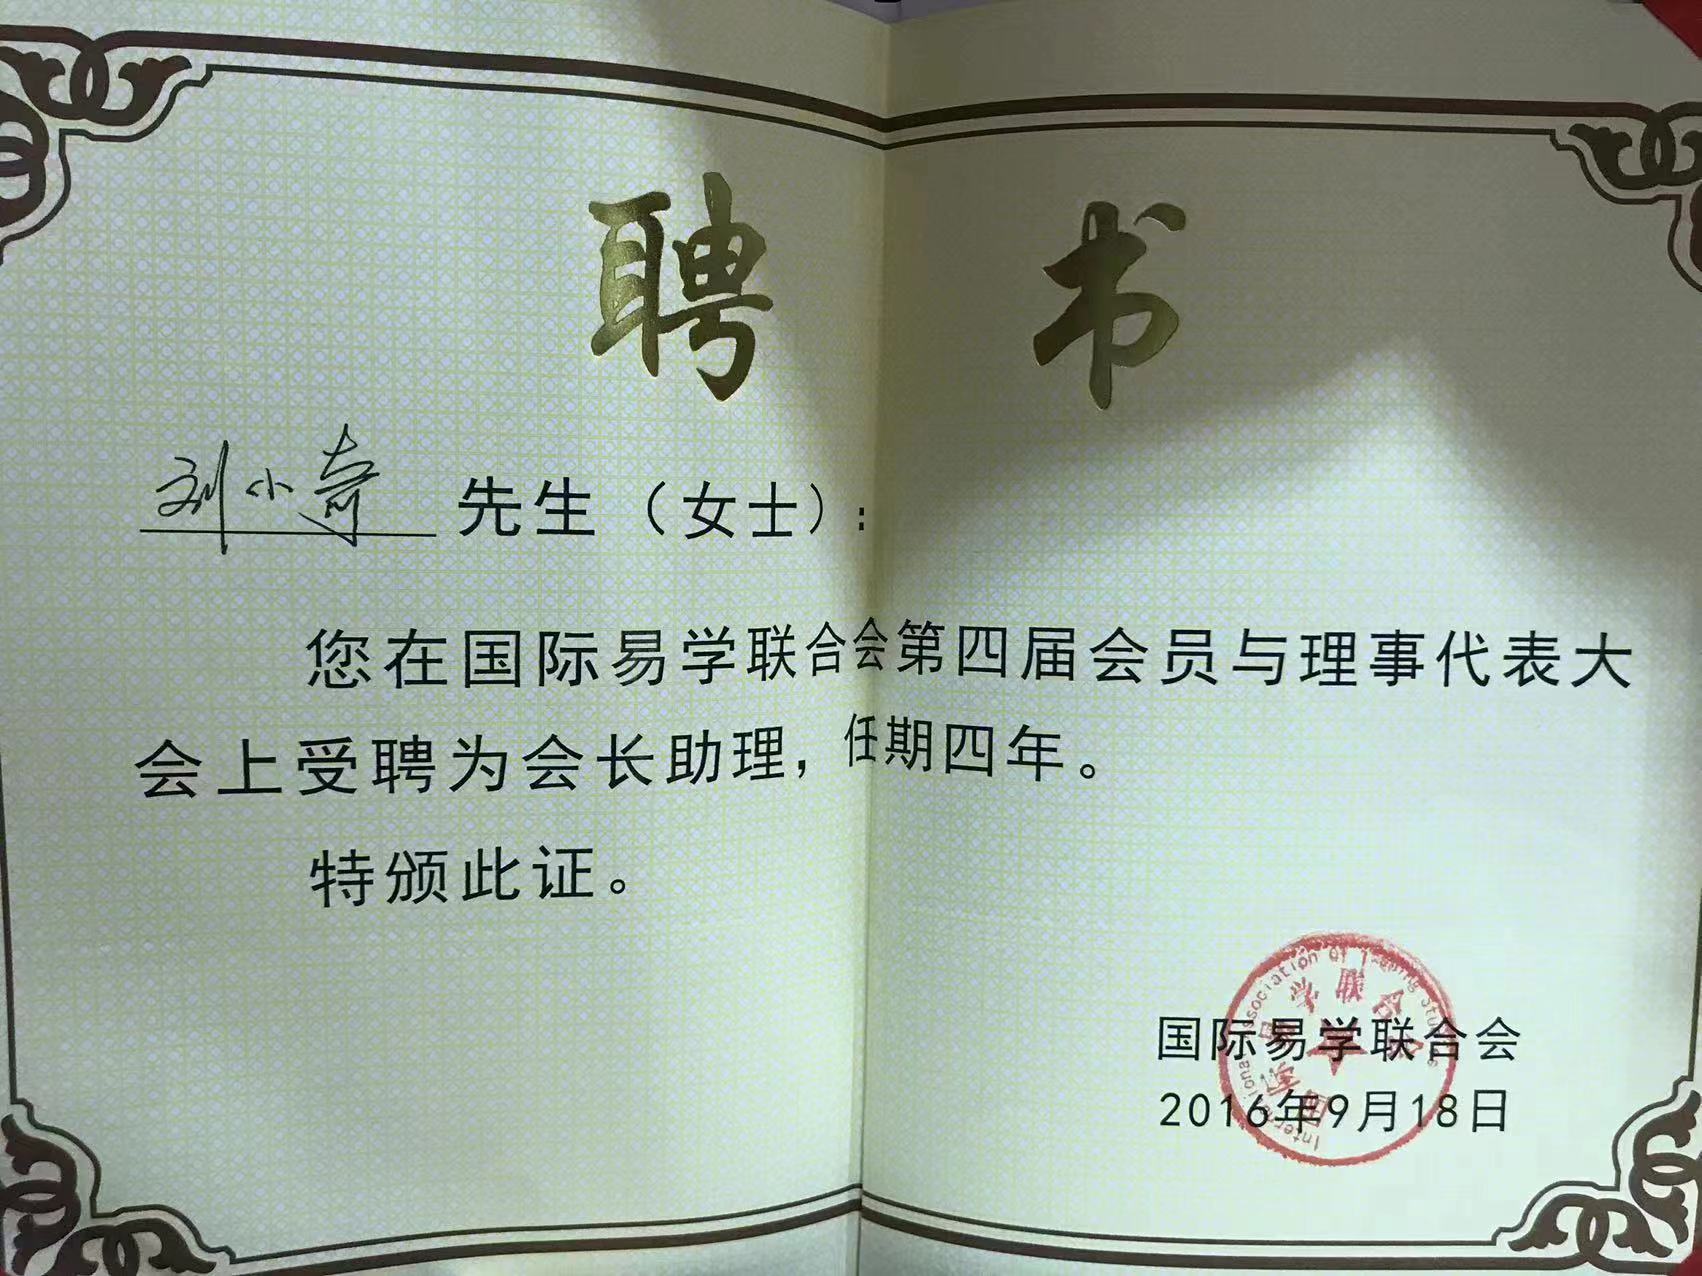 聘书
刘小奇 先生（女士）：
您在国际易学联合会第四届会员与理事代表大
会上受聘为会长助理，任期四年。
特颁此证。
国际易学联合会
2016年9月18日
国际易学联合会
International Association Of I-ching Studies